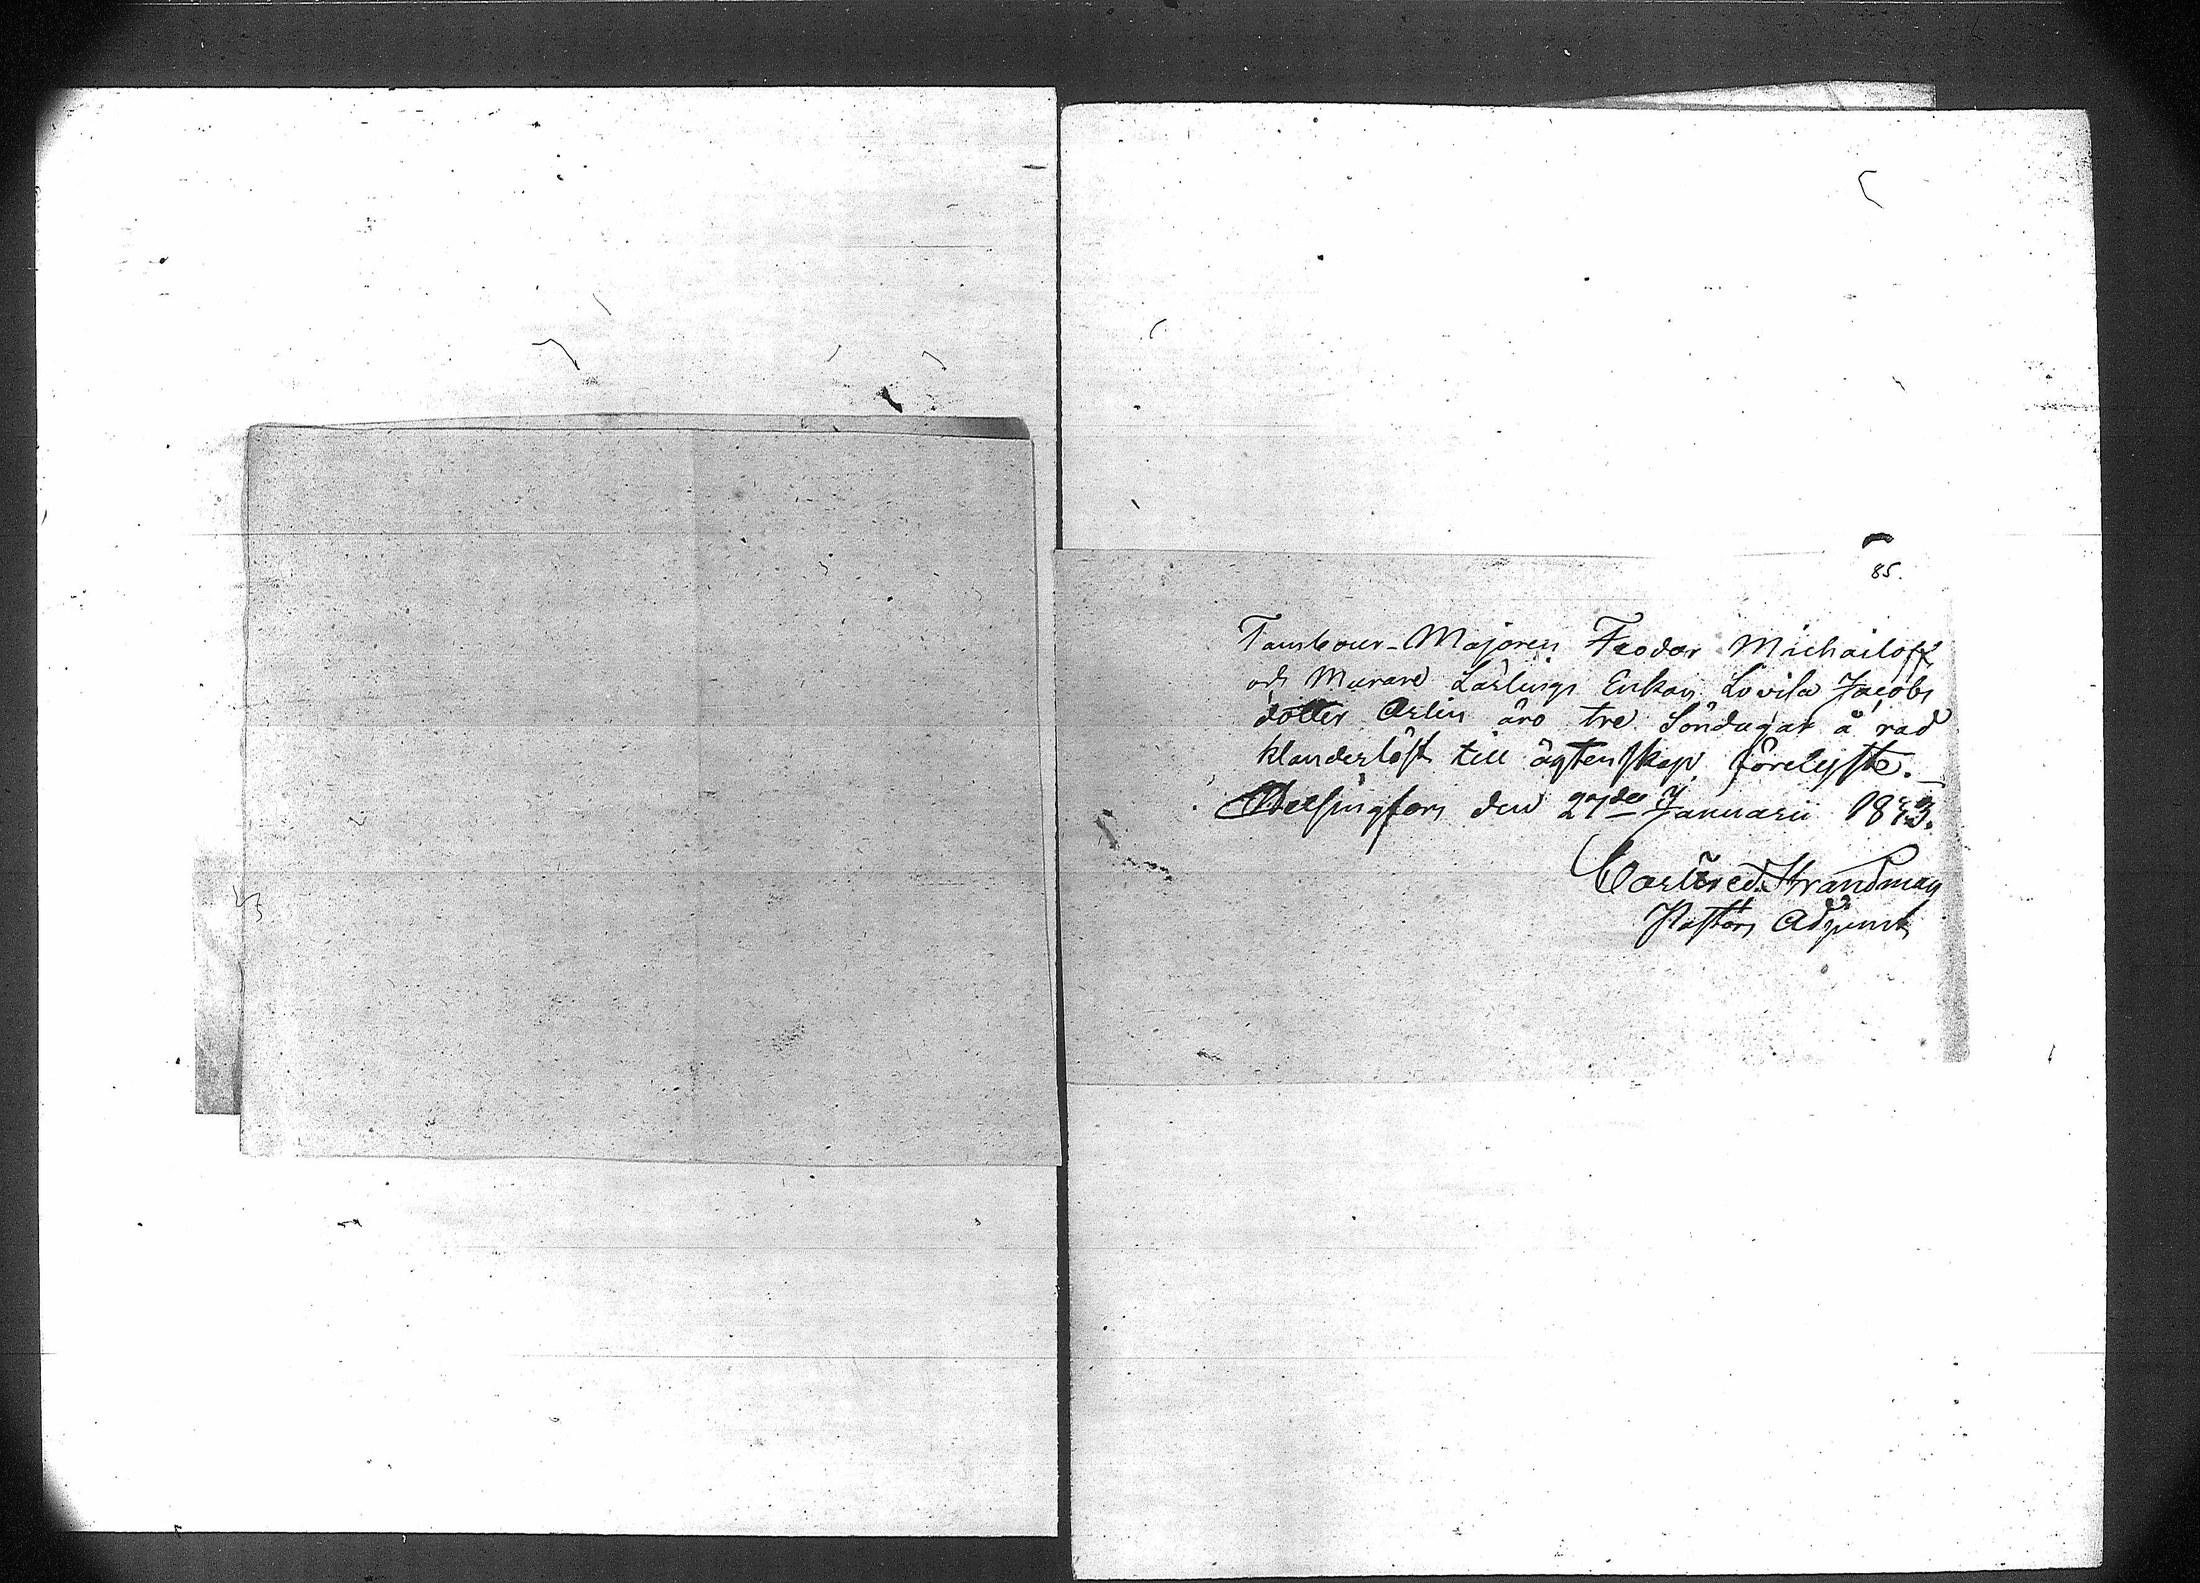 85.
Tambour-Majoren Feodor Michailoff
och Murare Lärlings Enkan Lovisa Jacobs
dotter Oslin äro tre Söndagar å rad
klanderlöst till ägtenskap förelyste.
Helsingfors den 27de Januarii
Carl Fred. Strandman
Pastors Adjunct